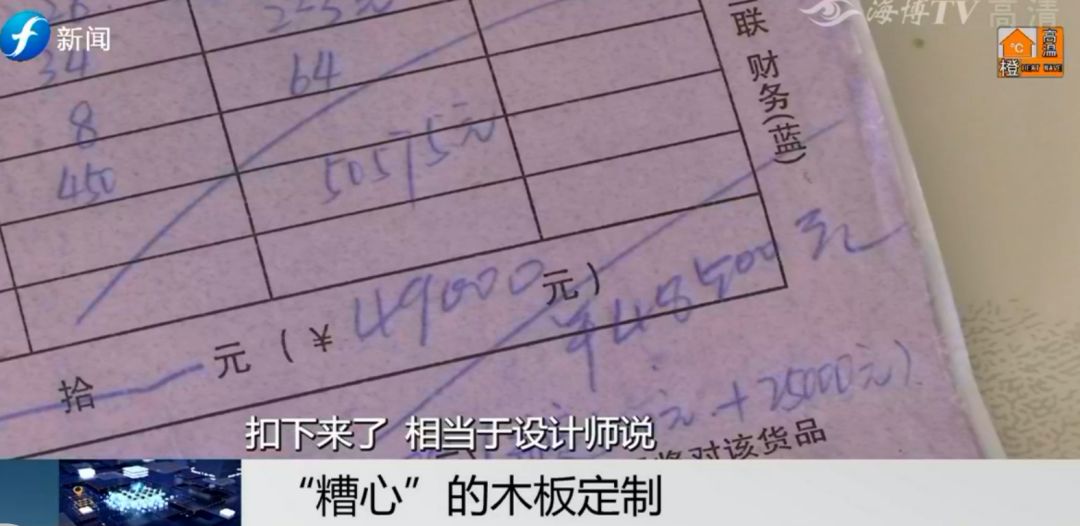 海博TV 高清
新闻
高温
橙 HEAT WAVE
联 财务(蓝)
34 64
8
450 50575元
拾 元(¥ 49000 元)
¥48500元
元+25000元)
对该货品
扣下来了 相当于设计师说
“糟心”的木板定制